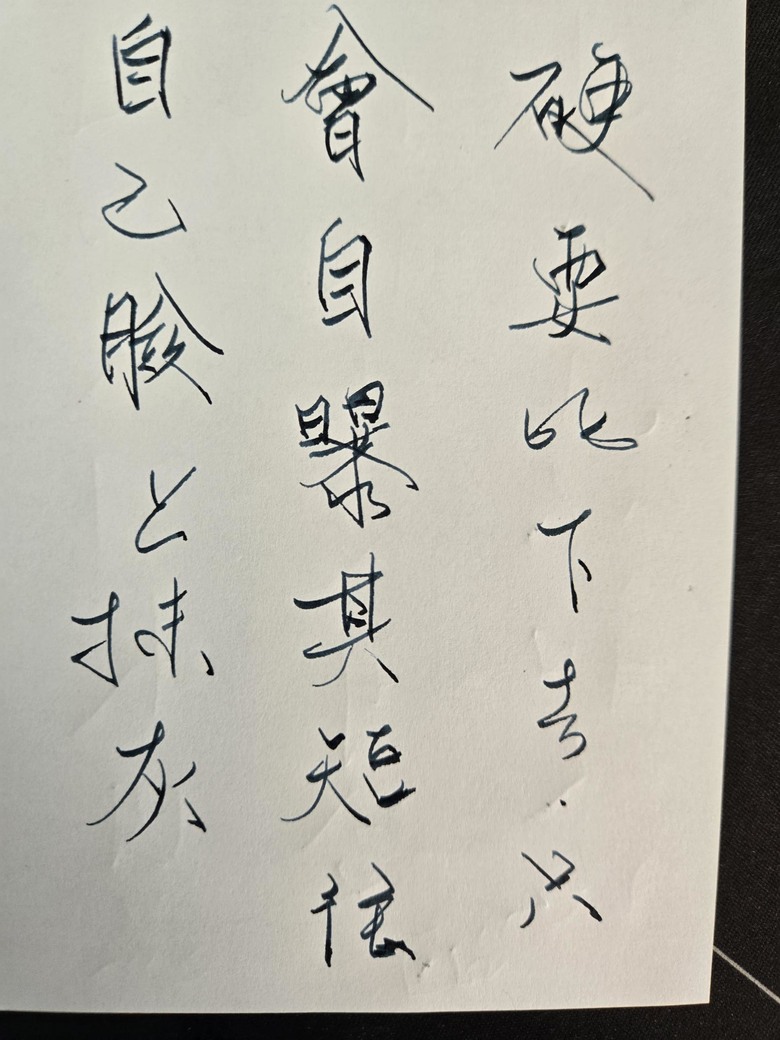 硬要比下去·只
會自曝其短往
自己臉上抹灰